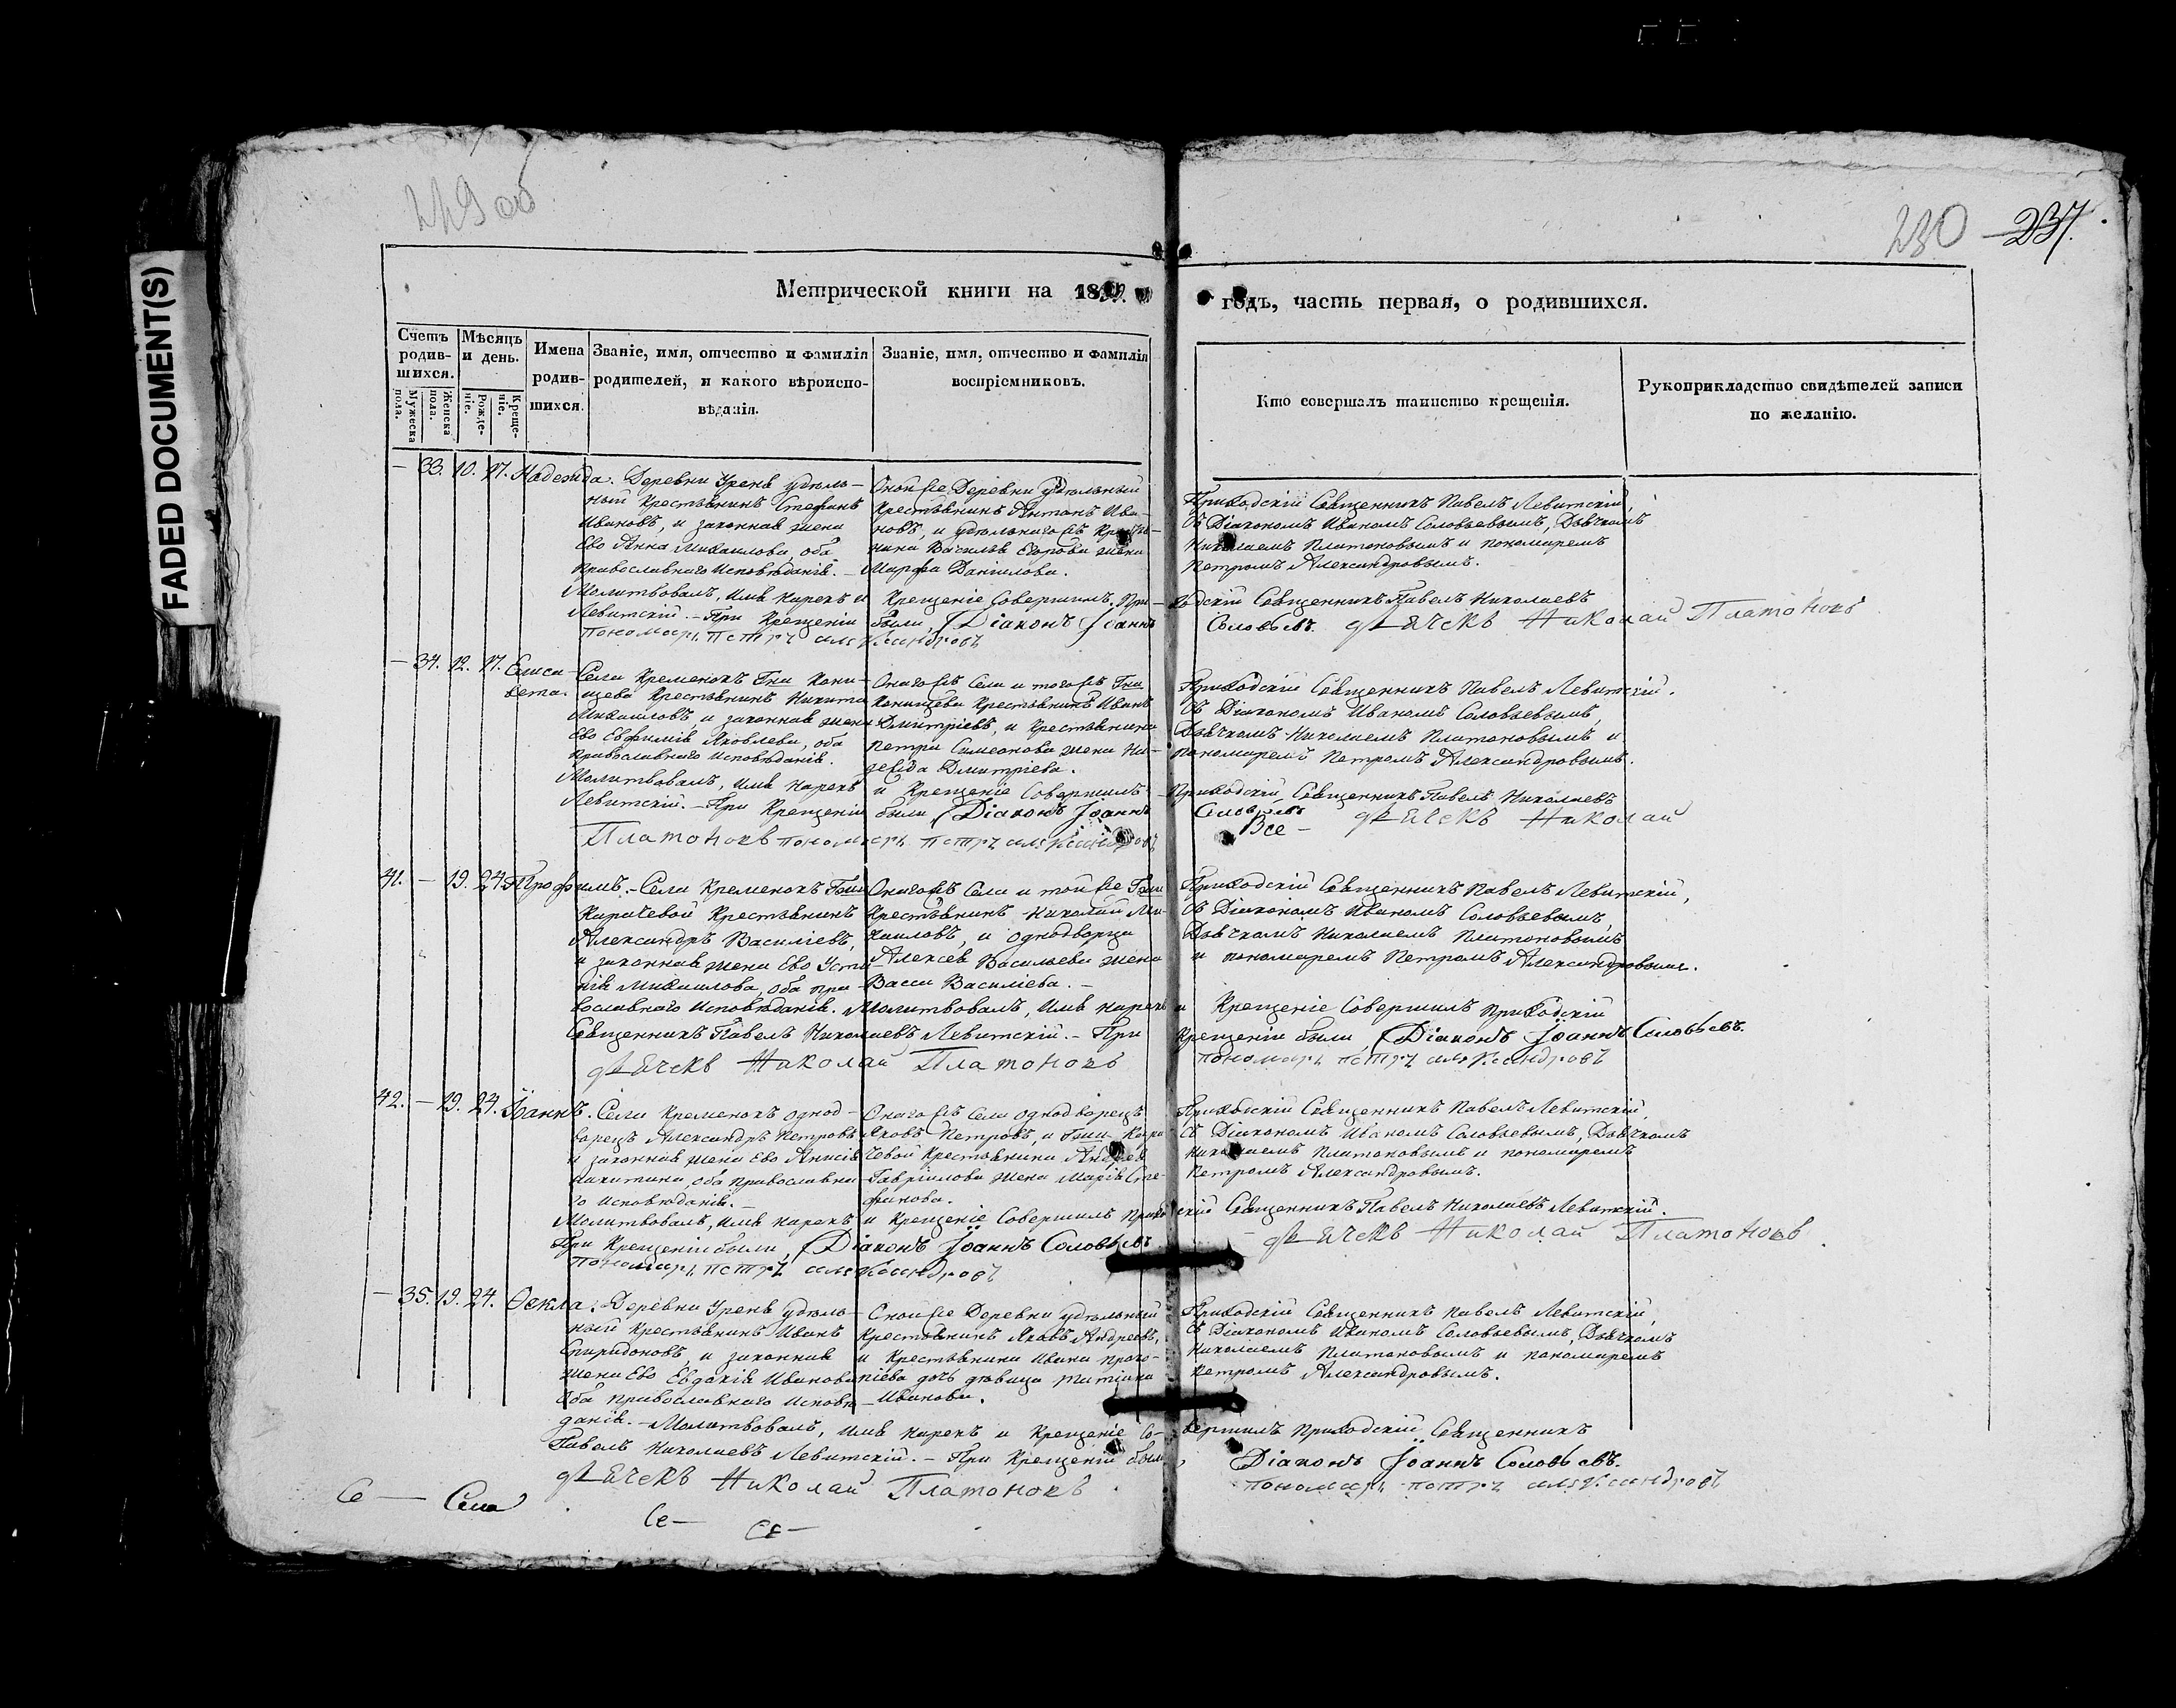 FADED DOCUMENT(S)
229 об
230 237.
Метрической книги на 18
годъ, часть первая, о родившихся.
Счетъ родив- шихся.
Мужеска пола.
Женска пола.
Мѣсяцъ и день.
Рожде- ніе.
Креще- ніе.
Имена родив- шихся.
Званіе, имя, отчество и фамилія родителей, и какого вѣроиспо- вѣданія.
Званіе, имя, отчество и фамилія воспріемниковъ.
Кто совершалъ таинство крещенія.
Рукоприкладство свидѣтелей записи по желанію.
— 33. 10. 17. Надежда.
Деревни Урень удѣль-
ный крестьянинъ Стефанъ
Ивановъ, и законная жена
Ево Анна Михаилова, оба
православнаго исповѣданія. —
Оной же Деревни удѣльный
крестьянинъ Антонъ Ива-
новъ, и удѣльнаго
Василья Егорова жена
Марфа Даніилова.
Приходскій Священникъ Павелъ Левитскій,
съ Діакономъ Иваномъ Соловьевымъ, Дьячкомъ
Николаемъ Платоновымъ и пономаремъ
Петромъ Александровымъ.
Молитвовалъ, имя нарекъ и Крещеніе Совершилъ При-ходскій Священникъ Павелъ Николаевъ
Левитскій. — При Крещеніи были, Діаконъ Іоаннъ Соловьевъ. дьячекъ Николай Платоновъ
пономарь петръ александровъ
— 34. 12. 17. Елиса-
вета.
Села Кременокъ Гна Кани-
щева Крестьянинъ Никита
Михаиловъ и законная жена
Ево Евфимія Яковлева, оба
православнаго исповѣданія.
Онагожъ Села и тогожъ Гна
Канищева Крестьянинъ Иванъ
Дмитріевъ, и крестьянина
Петра Симеонова жена На-
дежда Дмитріева.
Приходскій Священникъ Павелъ Левитскій.
съ Діакономъ Иваномъ Соловьевымъ,
Дьячкомъ Николаемъ Платоновымъ и
пономаремъ Петромъ Александровымъ.
Молитвовалъ, имя нарекъ и Крещеніе Совершилъ — Приходскій Священникъ Павелъ Николаевъ
Левитскій. — При Крещеніи были Діаконъ Іоаннъ Соловьевъ дьячекъ Николай
Платоновъ пономарь петръ александровъ
Все —
41. — 19. 24. Трофимъ. —
Села Кременокъ Гжи
Карачевой Крестьянинъ
Александръ Василіевъ,
и законная жена Ево Усти-
нія Михаилова, оба пра-
вославнаго исповѣданія.
Онагожъ Села и той же Гжи
Крестьянинъ Николай Ми-
хаиловъ, и однодворца
Алексея Васильева жена
Васса Василіева. —
Приходскій Священникъ Павелъ Левитскій,
съ Діакономъ Иваномъ Соловьевымъ,
Дьячкомъ Николаемъ Платоновымъ
и пономаремъ Петромъ Александровымъ.
Молитвовалъ, имя нарекъ и Крещеніе Совершилъ приходскій
Священникъ Павелъ Николаевъ Левитскій. — При Крещеніи были, Діаконъ Іоаннъ Соловьевъ.
дьячекъ Николай Платоновъ пономарь петръ александровъ
42. — 19. 24. Іоаннъ.
Села Кременокъ однод-
ворецъ Александръ Петровъ
и законная жена Ево Анисія
Никитина, оба православна-
го исповѣданія. —
Онагожъ Села однодворецъ
Яковъ Петровъ, и Гжи Кара-
чевой Крестьянина Андрея
Гавріилова жена Марія Сте-
фанова.
Приходскій Священникъ Павелъ Левитскій,
съ Діакономъ Иваномъ Соловьевымъ, Дьячкомъ
Николаемъ Платоновымъ и пономаремъ
Петромъ Александровымъ.
Молитвовалъ, имя нарекъ и Крещеніе Совершилъ Приходскій Священникъ Павелъ Николаевъ Левитскій.
При Крещеніи были, Діаконъ Іоаннъ Соловьевъ — дьячекъ Николай Платоновъ
пономарь петръ александровъ
— 35. 19. 24. Ѳекла.
Деревни Урень удѣль-
ный крестьянинъ Иванъ
Спиридоновъ, и законная
жена Ево Евдокія Иванова
оба православнаго исповѣ-
данія. —
Оной же Деревни удѣльный
Крестьянинъ Яковъ Андреевъ,
и крестьянина Ивана Проко-
піева дочь дѣвица Татіана
Иванова.
Приходскій Священникъ Павелъ Левитскій,
съ Діакономъ Иваномъ Соловьевымъ, Дьячкомъ
Николаемъ Платоновымъ и пономаремъ
Петромъ Александровымъ.
Молитвовалъ, имя нарекъ и Крещеніе Со-вершилъ Приходскій Священникъ
Павелъ Николаевъ Левитскій. — При Крещеніи были, Діаконъ Іоаннъ Соловьевъ.
дьячекъ Николай Платоновъ пономарь петръ александровъ
Се — Села
Се — Се —